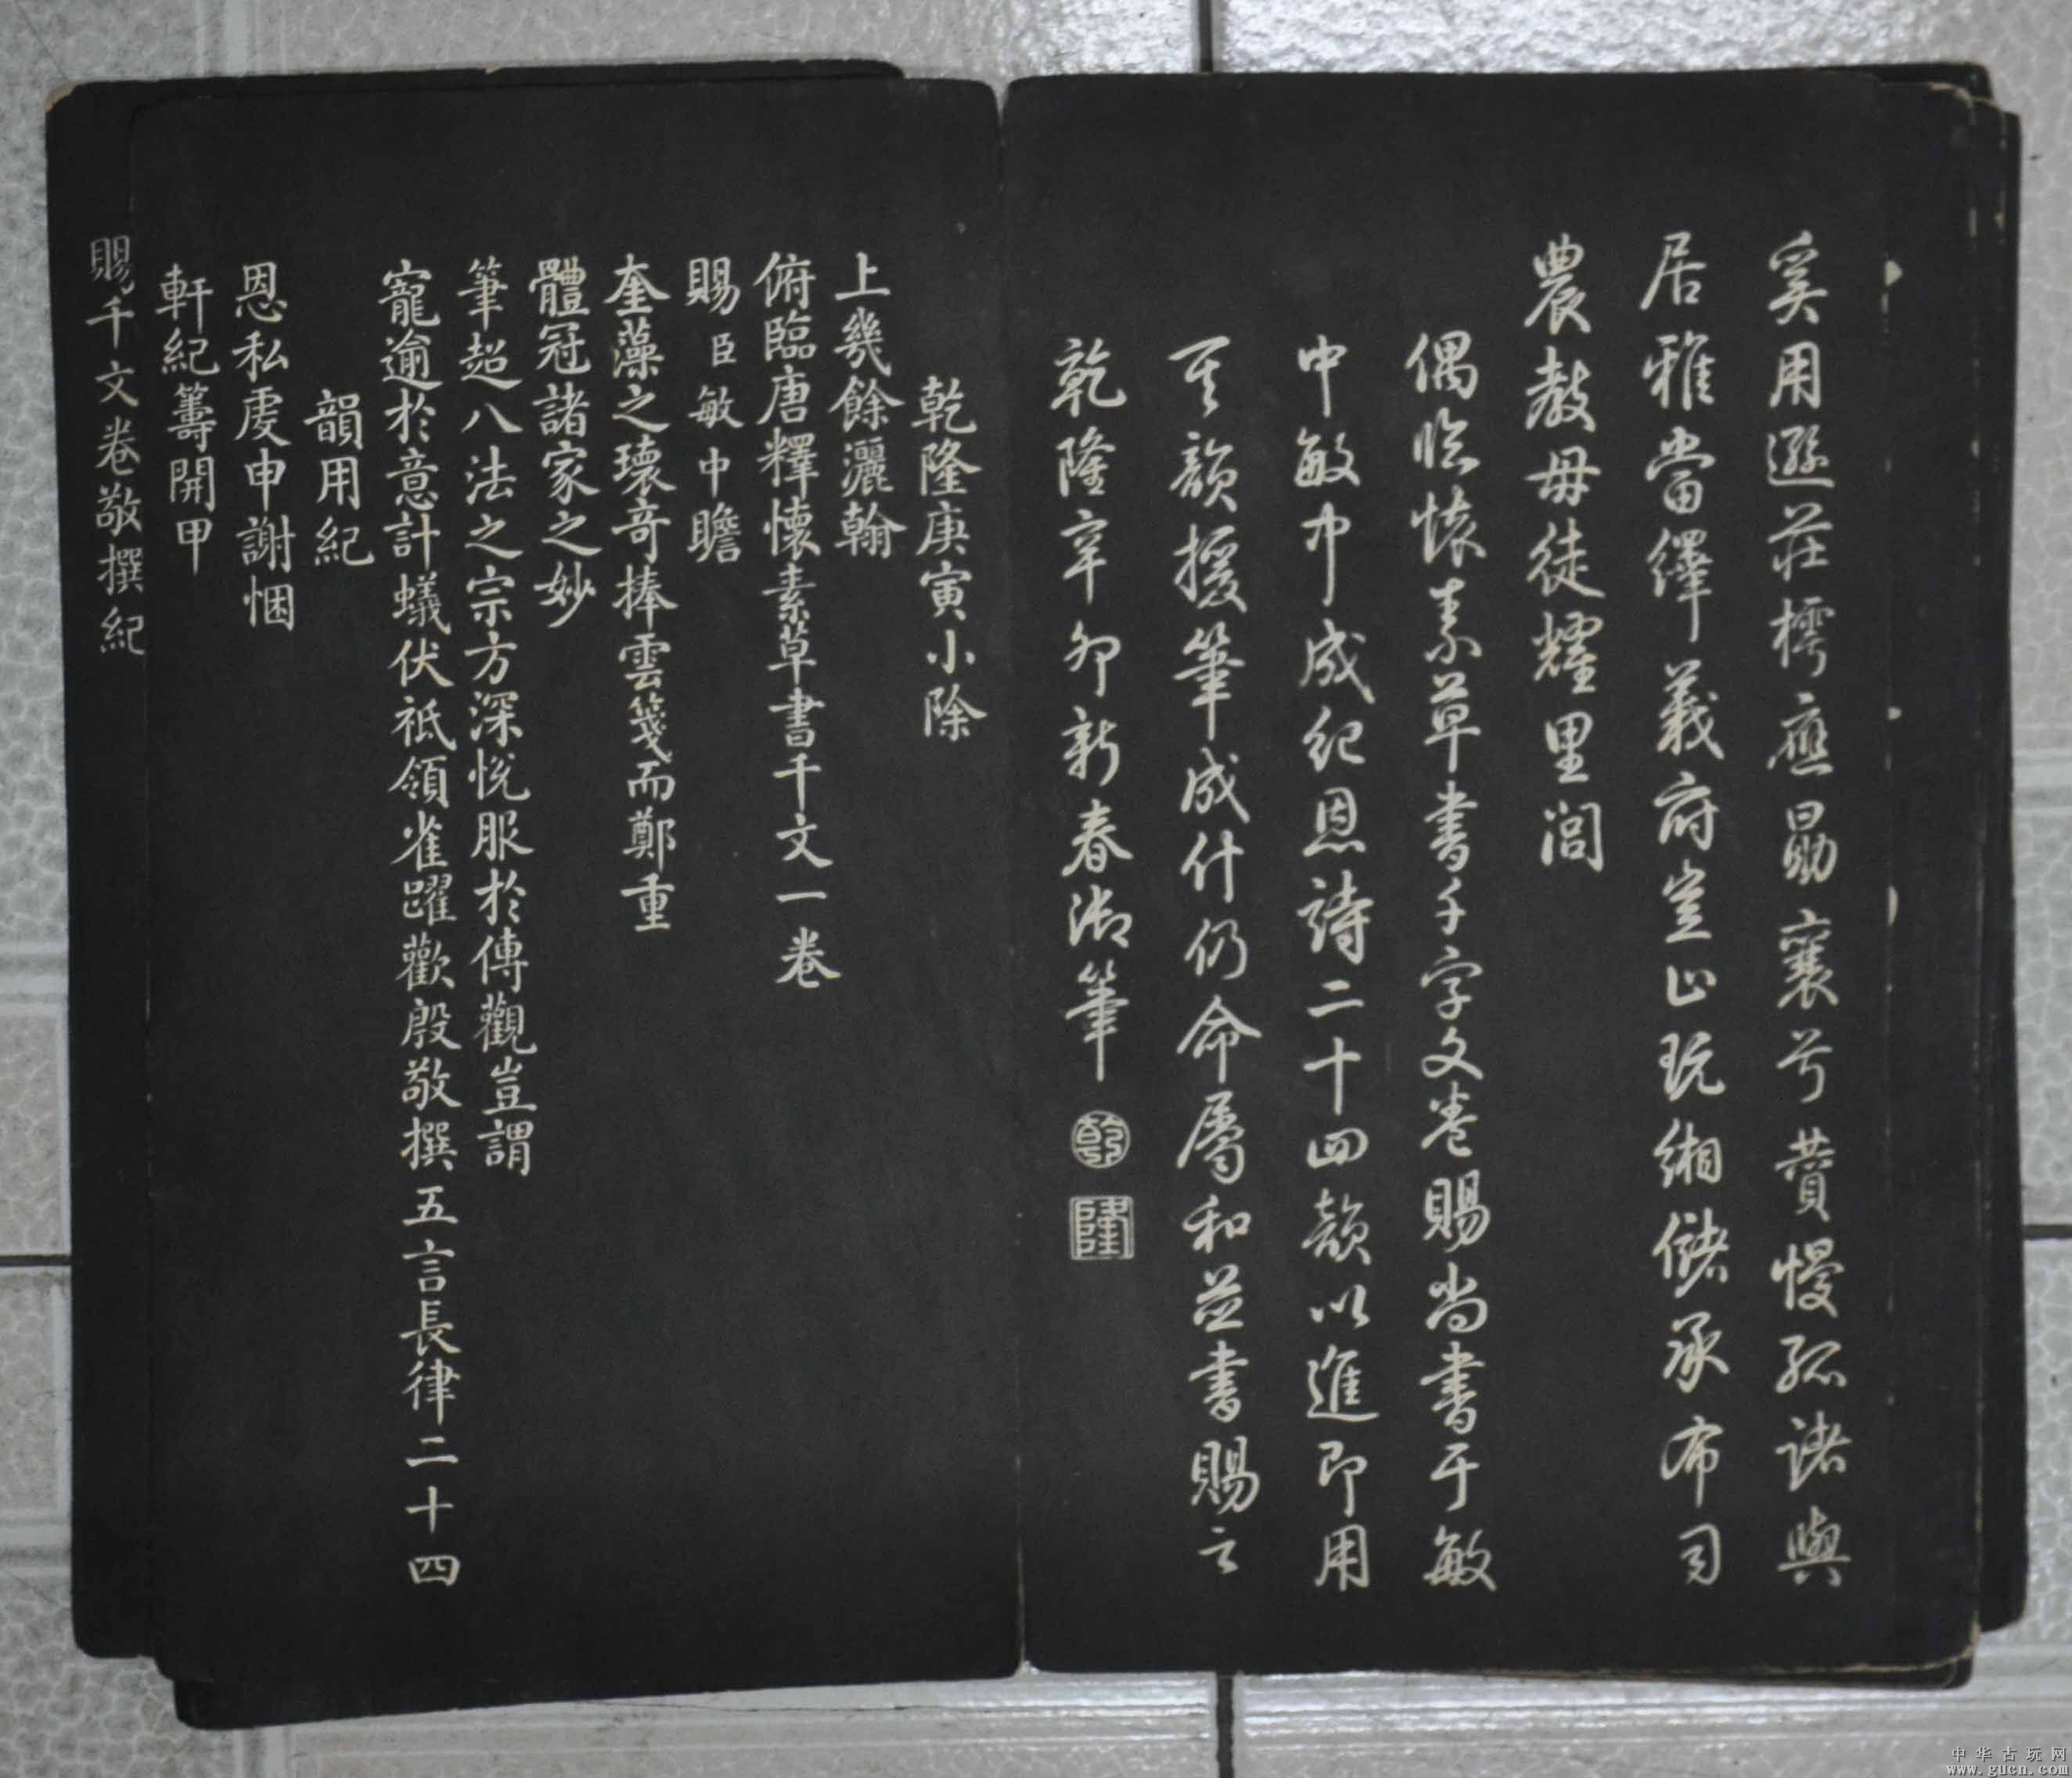 奚用遜莊樗應勗襄兮費慢孤諸與
居雅當繹義府豈止玩緗儲承布司
農教毋徒耀里閭
偶臨懷素草書千字文卷賜尚書于敏
中敏中成紀恩詩二十四韻以進即用
其韻援筆成什仍命屬和並書賜之
乾隆辛卯新春御筆
乾
隆
乾隆庚寅小除
上幾餘灑翰
俯臨唐釋懷素草書千文一卷
賜臣敏中瞻
奎藻之瓌奇捧雲箋而鄭重
體冠諸家之妙
筆超八法之宗方深悅服於傳觀豈謂
寵逾於意計蟻伏祗領雀躍歡殷敬撰五言長律二十四
韻用紀
恩私虔申謝悃
軒紀籌開甲
賜千文卷敬撰紀
中华古玩网
www.gucn.com